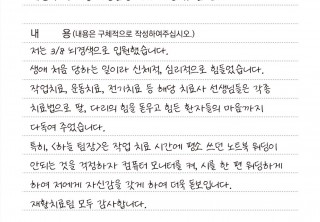 내      용 (내용은 구체적으로 작성하여주십시오.)
저는 3/8 뇌경색으로 입원했습니다.
생애 처음 당하는 일이라 신체적, 심리적으로 힘들었습니다.
작업치료, 운동치료, 전기치료 등 해당 치료사 선생님들은 각종
치료법으로 팔, 다리의 힘을 돋우고 힘든 환자들의 마음까지
다독여 주었습니다.
특히, <하늘 팀장>은 작업 치료 시간에 평소 쓰던 노트북 워딩이
안되는 것을 걱정하자 컴퓨터 모니터를 켜, 시를 한 편 워딩하게
하여 저에게 자신감을 갖게 하여 더욱 돋보입니다.
재활치료팀 모두 감사합니다.